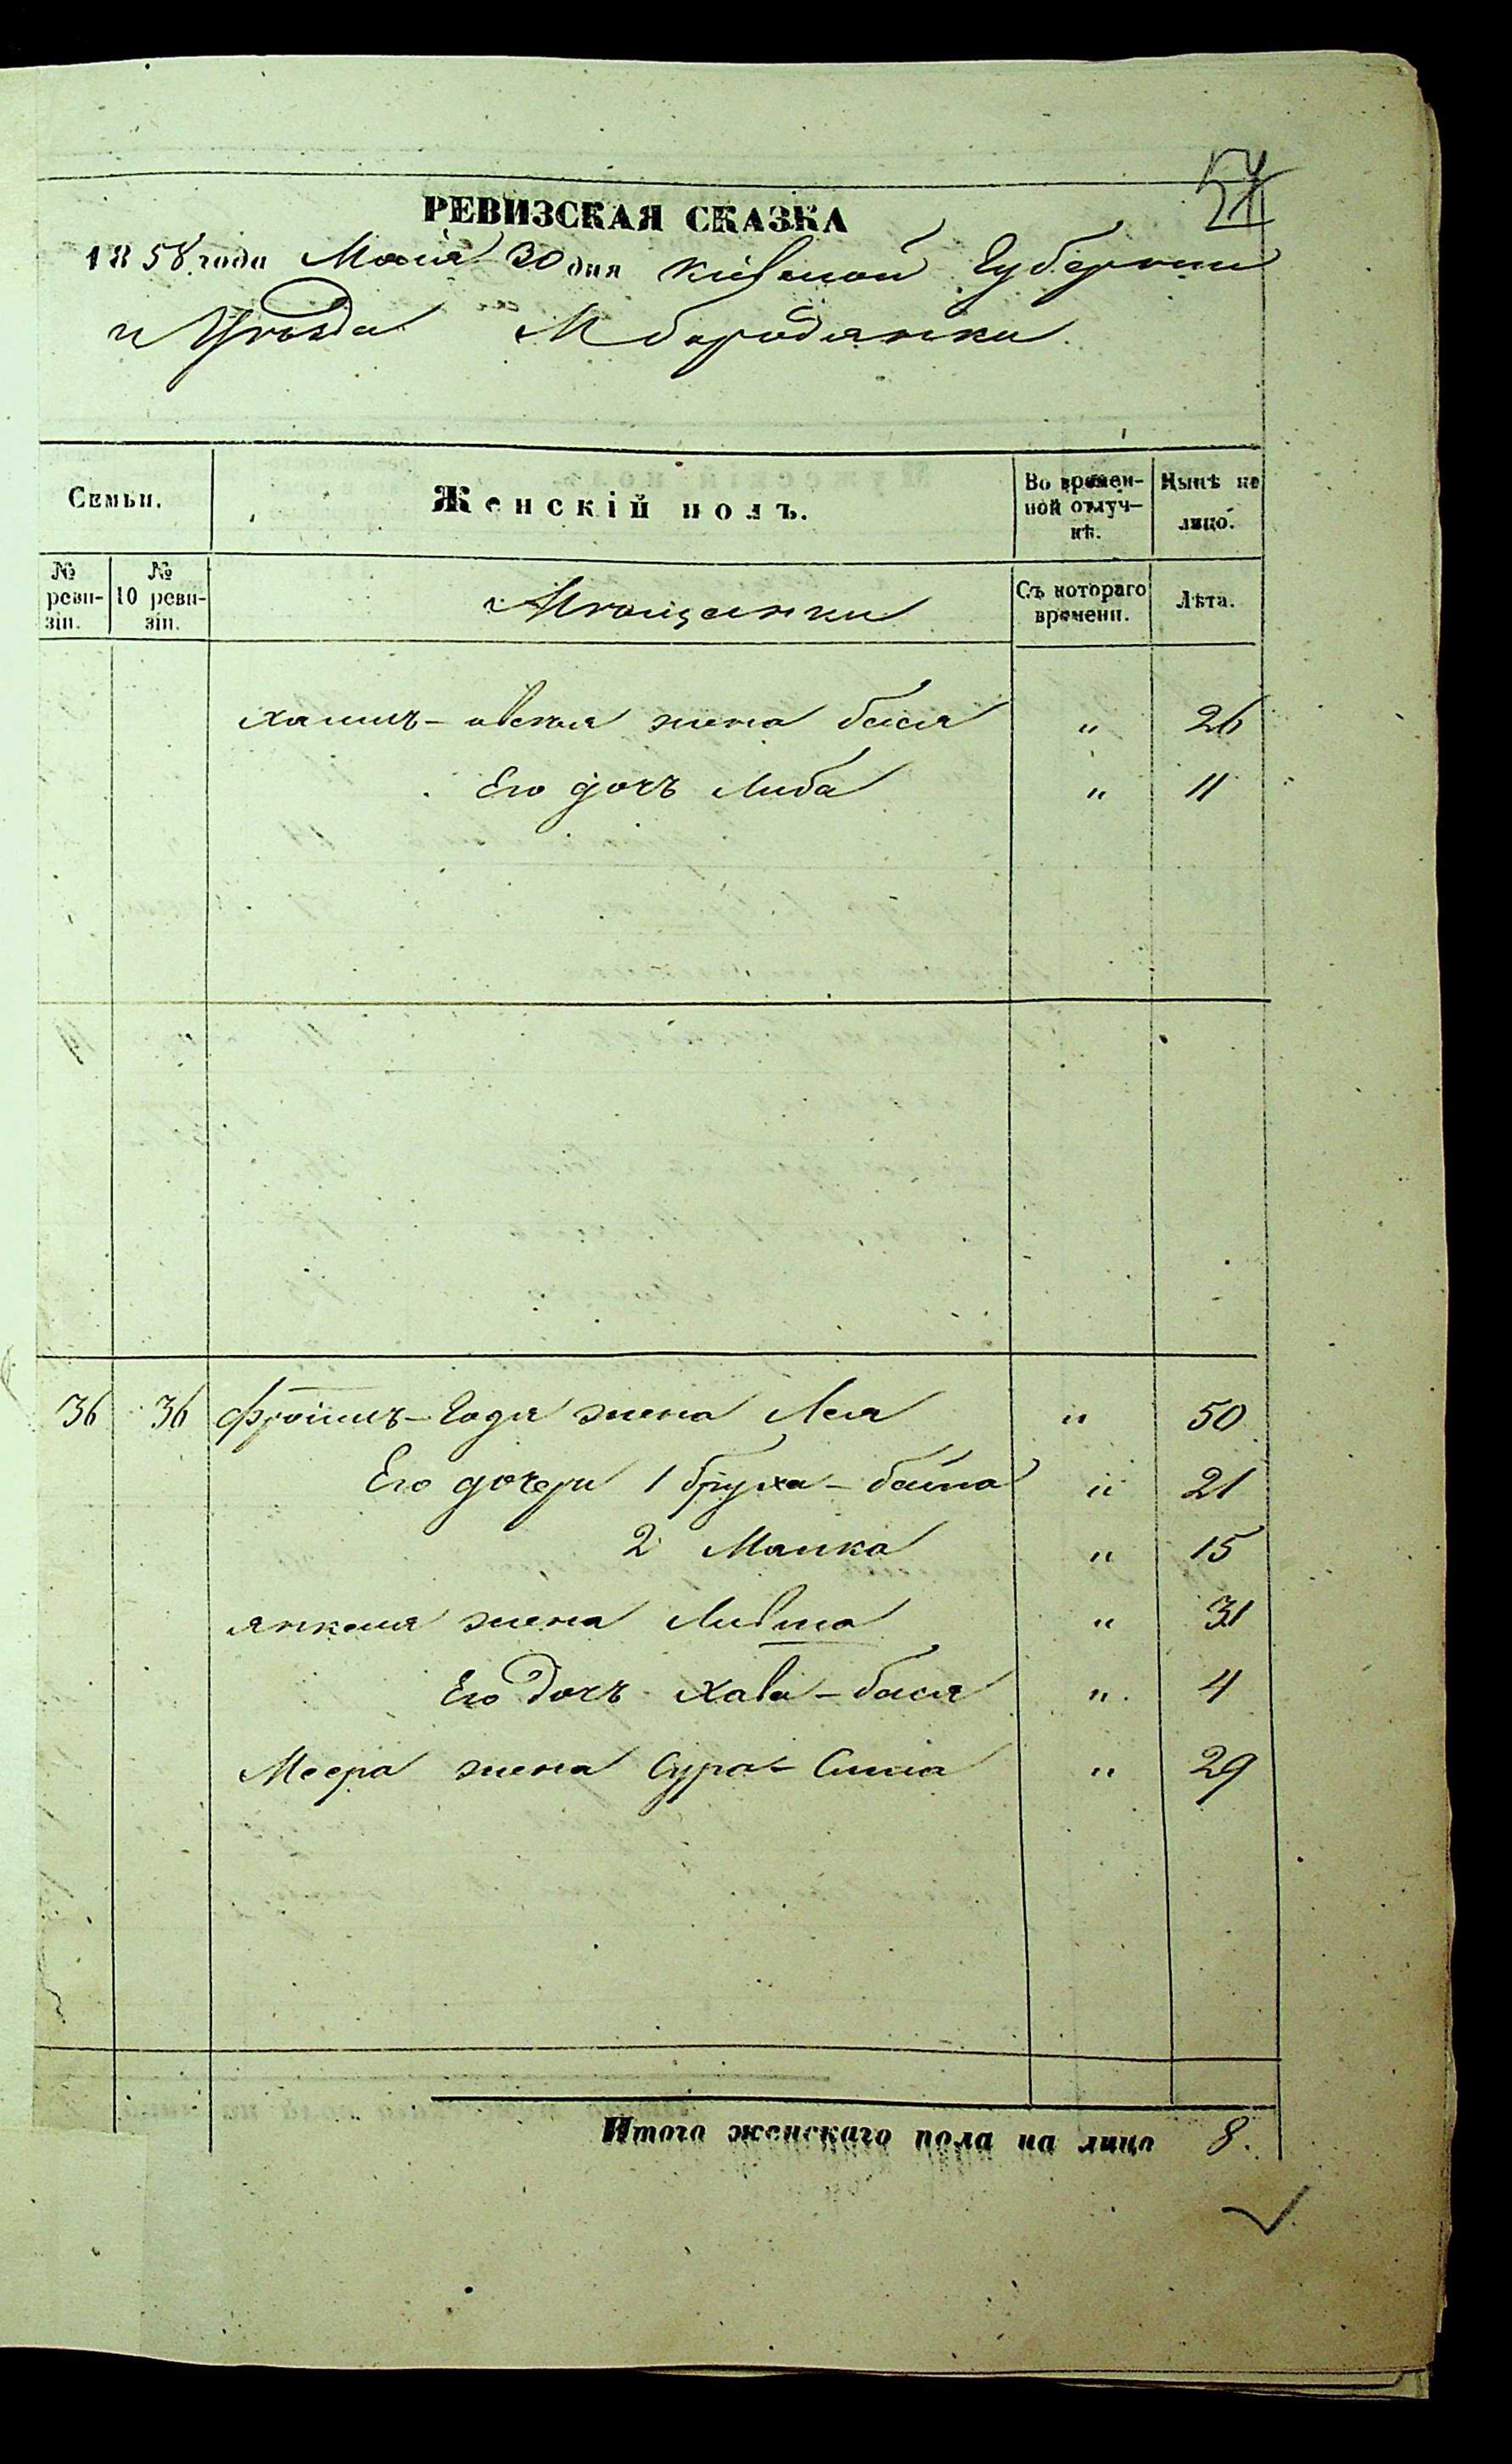 54
РЕВИЗСКАЯ СКАЗКА
1858 года Маія 30 дня Кіевской Губерніи
и Уѣзда М Бородянки
Семьи. Женскій полъ. Во времен-ной отлуч-кѣ. Нынѣ на лицо.
№ реви-зіи. № 10 реви-зіи. Мѣщанки Съ котораго времени. Лѣта.
жена бася " 26
Его дочъ Либа " 11
36 36 Фроимъ-Годя жена Лея " 50
Его дочери 1 бруха-бейла " 21
2 Малка " 15
янкеля жена Ливша " 31
Его Дочъ Хава-бася " 4
Меера жена Сура-Сима " 29
Итого женскаго пола на лицо 8.